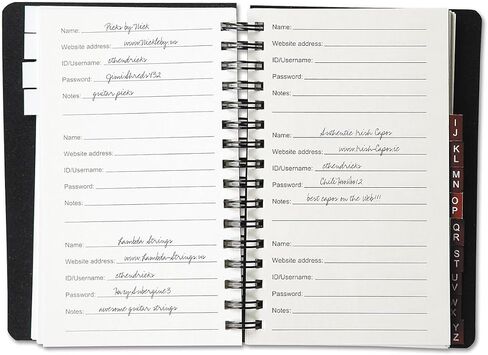 Name: Picks by Nick
Website address: www.Nickleby.us
ID/Username: ethendricks
Password: JimiShreds432
Notes: guitar picks
Name:
Website address:
ID/Username:
Password:
Notes:
Name: Lambda Strings
Website address: www.Lambda-Strings.us
ID/Username: ethendricks
Password:
Notes: awesome guitar strings
Name:
Website address:
ID/Username:
Password:
Notes:
Name: Authentic Irish Capos
Website address: www.Irish-Capos.ie
ID/Username: ethendricks
Password:
Notes: best capos on the Web!!!
Name:
Website address:
ID/Username:
Password:
Notes:
I
J
K
L
M
N
O
P
Q
R
S
T
U
V
W
X
Y
Z